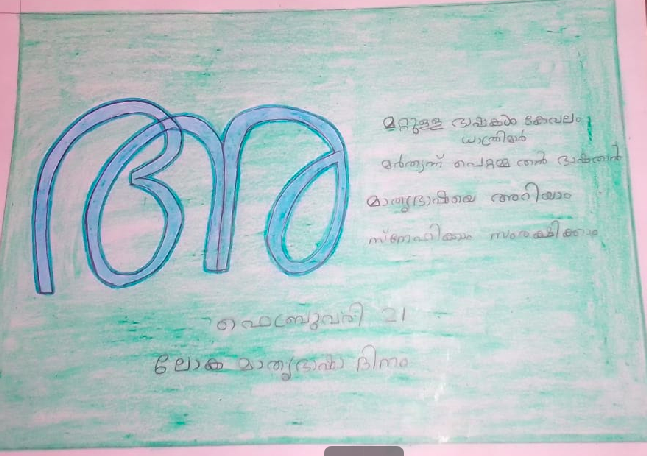 അ
മറ്റുള്ള ഭാഷകൾ കേവലം
ധാത്രിമാർ
മർത്യന്ന് പെറ്റമ്മ തൻ ഭാഷതാൻ
മാതൃഭാഷയെ അറിയാം
സ്നേഹിക്കാം സംരക്ഷിക്കാം
ഫെബ്രുവരി 21
ലോക മാതൃഭാഷാ ദിനം